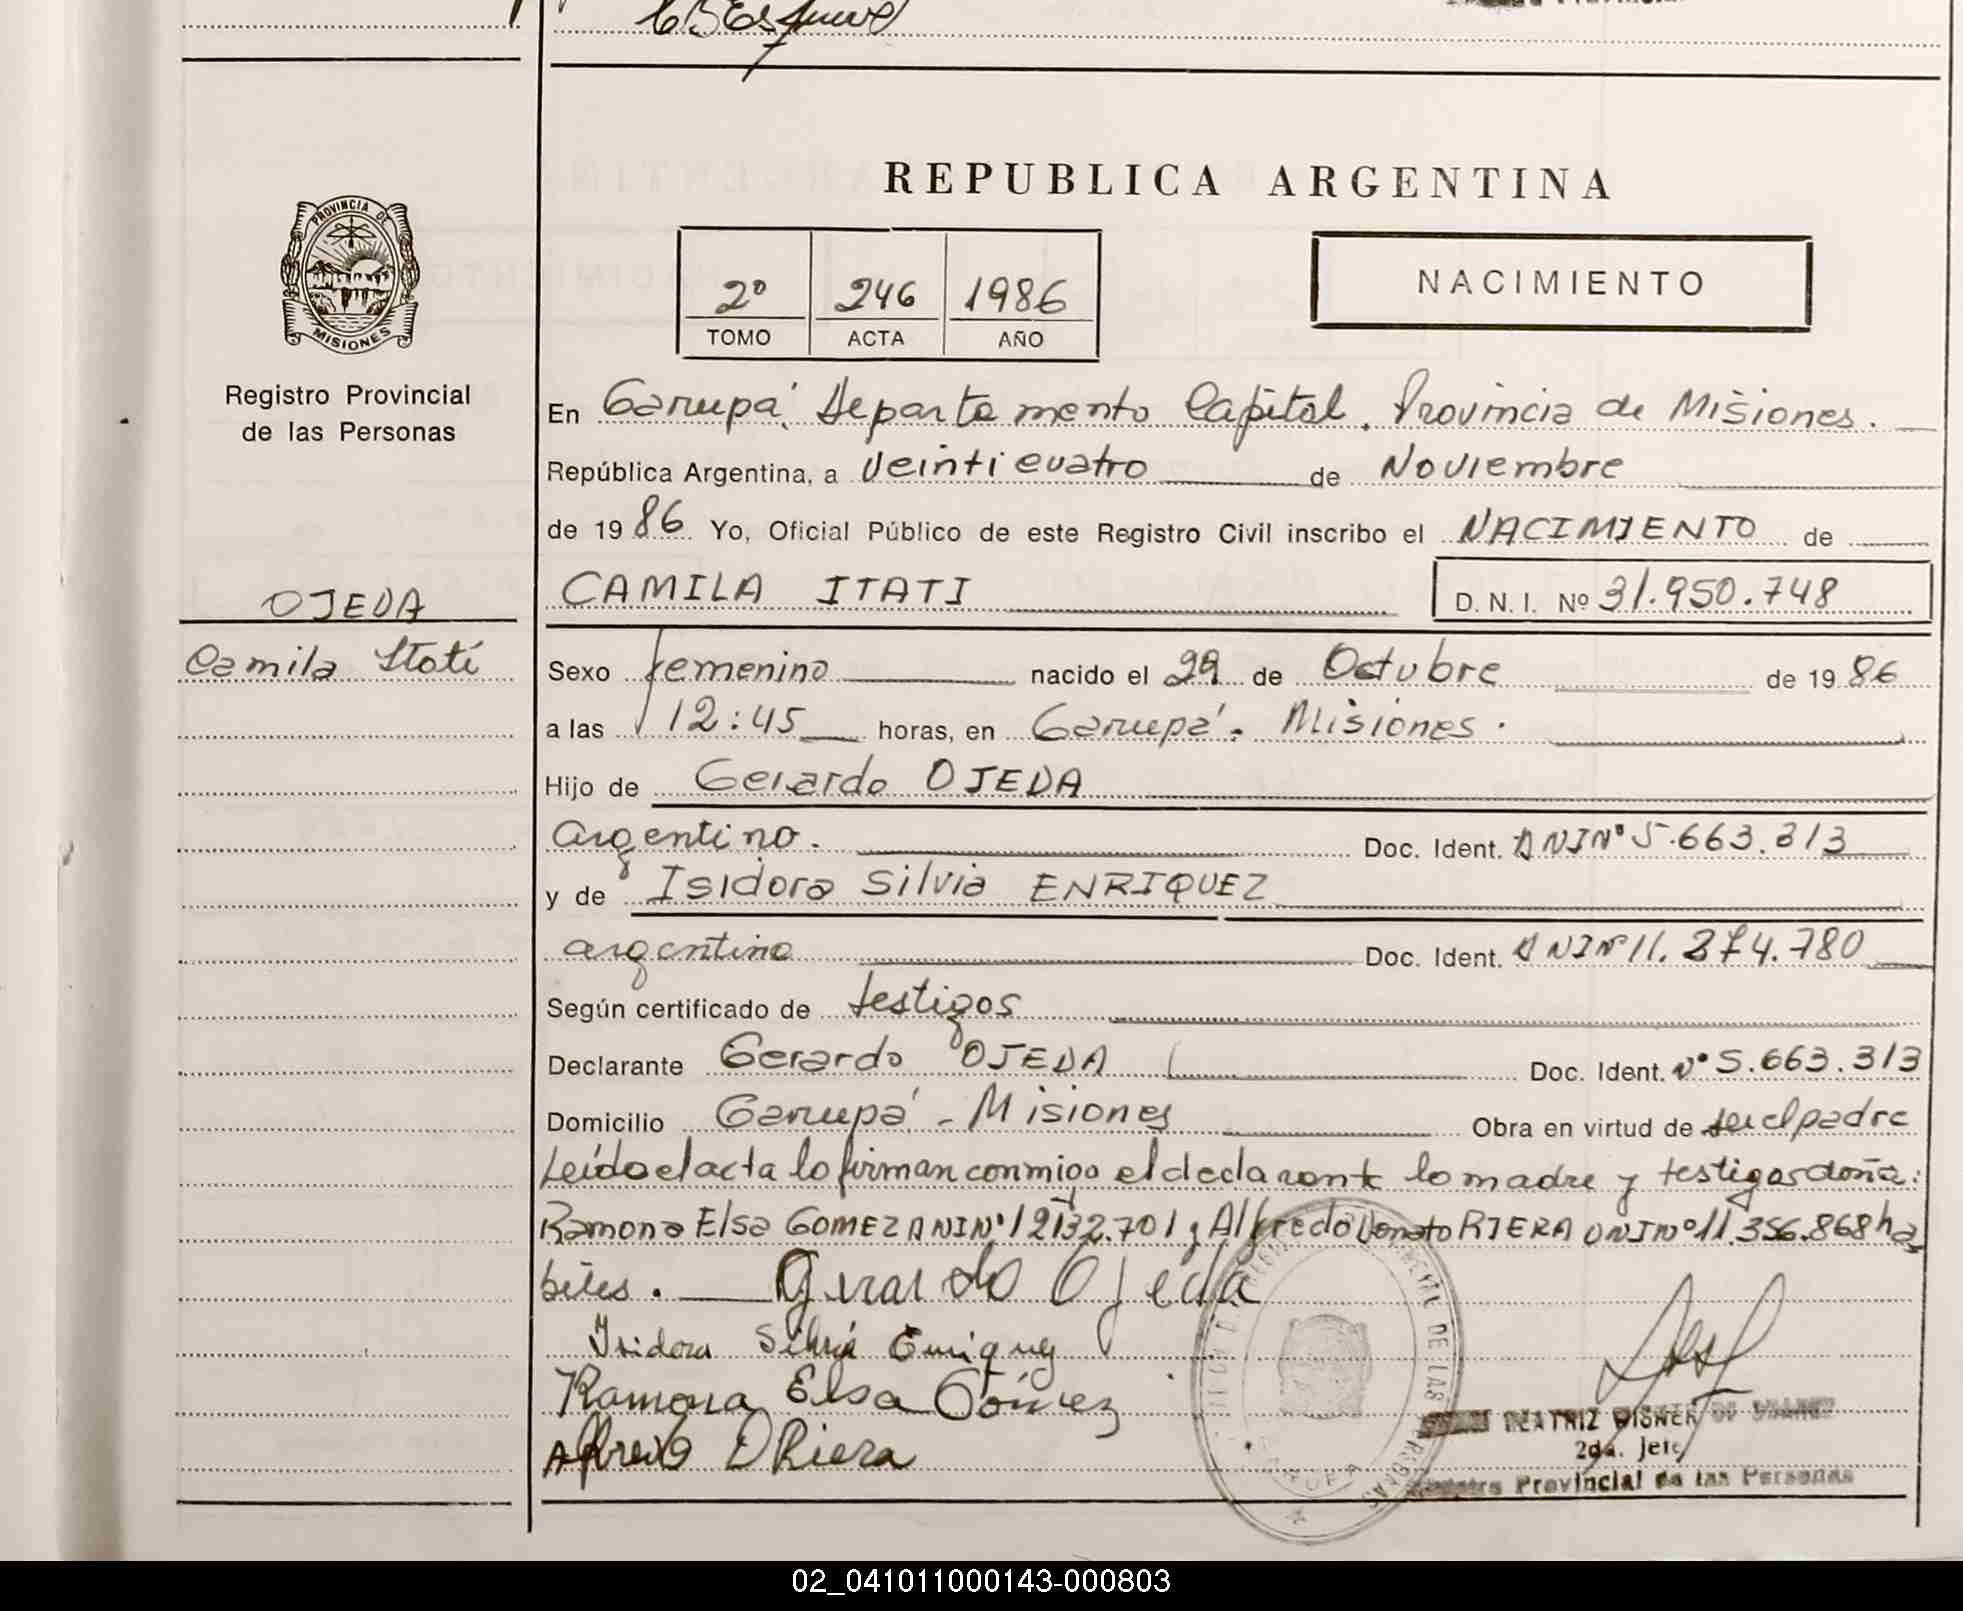 REPUBLICA ARGENTINA
PROVINCIA DE
MISIONES
2º 246 1986
TOMO ACTA AÑO
NACIMIENTO
Registro Provincial
de las Personas
En Garupá, Departamento Capital. Provincia de Misiones.
República Argentina, a Veinticuatro de Noviembre
de 1986 Yo, Oficial Público de este Registro Civil inscribo el NACIMIENTO de
OJEDA
CAMILA ITATI D. N. I. Nº 31.950.748
Camila Itatí
Sexo femenino nacido el 29 de Octubre de 1986
a las 12:45 horas, en Garupá - Misiones.
Hijo de Gerardo OJEDA
argentino. Doc. Ident. DNI Nº 5.663.313
y de Isidora Silvia ENRIQUEZ
argentina Doc. Ident. DNI Nº 11.374.780
Según certificado de testigos
Declarante Gerardo OJEDA Doc. Ident. Nº 5.663.313
Domicilio Garupá - Misiones Obra en virtud de ser el padre
Leído el acta lo firman conmigo el declarante la madre y testigos doña:
Ramona Elsa GOMEZ DNI Nº 12132.701 y Alfredo Donato RIERA DNI Nº 11.356.868 há
biles.
Gerardo Ojeda
Isidora Silvia Enriquez
Ramona Elsa Gómez
Alfredo D Riera
BEATRIZ WISNER DE
2da. Jefe
Registro Provincial de las Personas
02_041011000143-000803